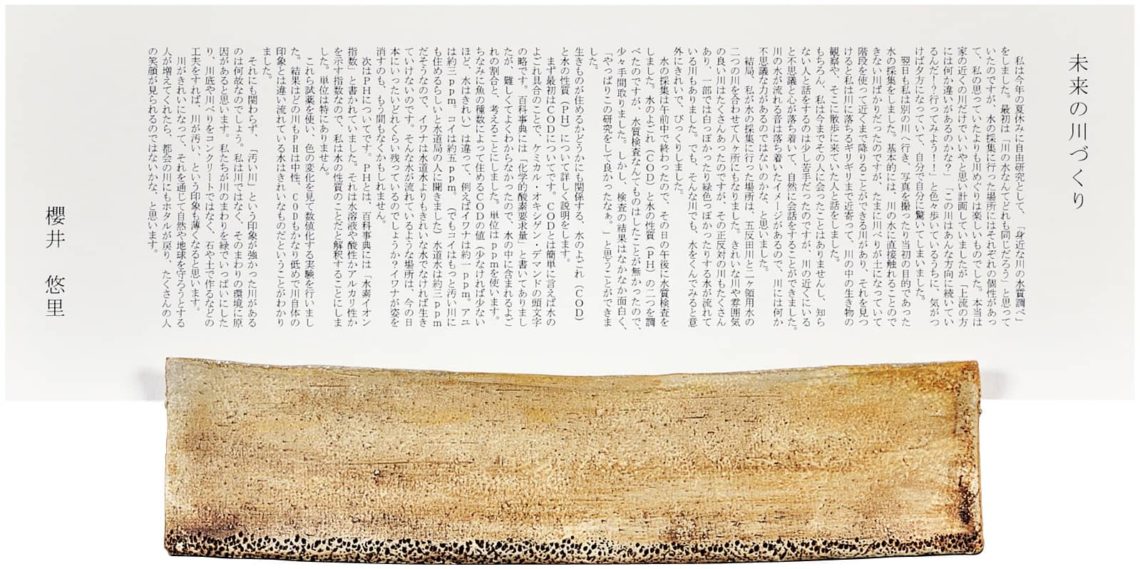 未来の川づくり
私は今年の夏休みに自由研究として、「身近な川の水質調べ」
をしました。最初は「川の水なんてどれも同じだろう」と思って
いたのですが、水の採集に行った場所にはそれぞれの個性があっ
て、私の思っていたよりも川めぐりは楽しいものでした。本当は
家の近くの川だけでいいやと思い計画していましたが「上流の方
には何か違いがあるのかな?」「この川はあんな方向に続いてい
るんだ!?行ってみよう!!」と色々歩いているうちに、気がつ
けば夕方になっていて、自分で自分に驚いてしまいました。
翌日も私は別の川へ行き、写真を撮ったり当初の目的であった
水の採集をしました。基本的には、川の水に直接触れることので
きない川ばかりだったのですが、たまに川べりが土になっていて
階段を使って近くまで降りることができる川があり、それを見つ
けると私は川に落ちるギリギリまで近寄って、川の中の生き物の
観察や、そこに散歩に来ていた人と話をしました。
もちろん、私は今までその人に会ったことはありませんし、知ら
ない人と話をするのは少し苦手だったのですが、川の近くにいる
と不思議と心が落ち着いて、自然に会話をすることができました。
川の水が流れる音は落ち着いたイメージがあるので、川には何か
不思議な力があるのではないのかな、と思いました。
結局、私が水の採集に行った場所は、五反田川と二ヶ領用水の
二つの川を合わせて八ヶ所にもなりました。きれいな川や雰囲気
の良い川はたくさんあったのですが、その正反対の川もたくさん
あり、一部では白っぽかったり緑色っぽかったりする水が流れて
いる川もありました。でも、そんな川でも、水をくんでみると意
外にきれいで、びっくりしました。
水の採集は午前中で終わったので、その日の午後に水質検査を
しました。水のよごれ(COD)と水の性質(PH)の二つを調
べたのですが、水質検査なんてものはしたことが無かったので、
少々手間取りました。しかし、検査の結果はなかなか面白く、
「やっぱりこの研究をして良かったなぁ。」と思うことができま
した。
生きものが住めるかどうかにも関係する、水のよごれ(COD)
と水の性質(PH)について詳しく説明をします。
まず最初はCODについてです。CODとは簡単に言えば水の
よごれ具合のことで、ケミカル・オキシゲン・デマンドの頭文字
の略です。百科事典には「化学的酸素要求量」と書いてありまし
たが、難しくてよくわからなかったので、水の中に含まれるよご
れの割合と、考えることにしました。単位はppmを使います。
ちなみに魚の種数によって住めるCODの値(少なければ少ない
ほど、水はきれい)は違って、例えばイワナは約一ppm、アユ
は約三ppm、コイは約五ppm、(でもコイはもっと汚い川に
も住めるらしいと水道局の人に聞きました)水道水は約三ppm
だそうなので、イワナは水道水よりもきれいな水でなければ生き
ていけないのです。そんな水が流れているような場所は、今の日
本にいったいどれくらい残っているのでしょうかライワナが姿を
消すのも、もう間もなくかもしれません。
次はPHについてです。PHとは、百科事典には「水素イオン
指数」と書かれていました。それは水溶液や酸性かアルカリ性か
を示す指数なので、私は水の性質のことだと解釈することにしま
した。単位は特にありません。
これら試薬を使い、色の変化を見て数値化する実験を行いまし
た。結果はどの川もPHは中性、CODもかなり低めで川自体の
印象とは違い流れている水はきれいなものだということがわかり
ました。
それにも関わらず、「汚い川」という印象が強かった川がある
のは何故なのでしょう。私は川ではなく、そのまわりの環境に原
因があると思います。私たちが川のまわりを緑でいっぱいにした
り、川底や川べりをコンクリートではなく、石や土で作るなどの
工夫をすれば、「川が汚い」、という印象も薄くなると思います。
川がきれいになって、それを通じて自然や地球を守ろうとする
人が増えてくれたら、都会の川にもホタルが戻り、たくさんの人
の笑顔が見られるのではないかな、と思います。
櫻井 悠里